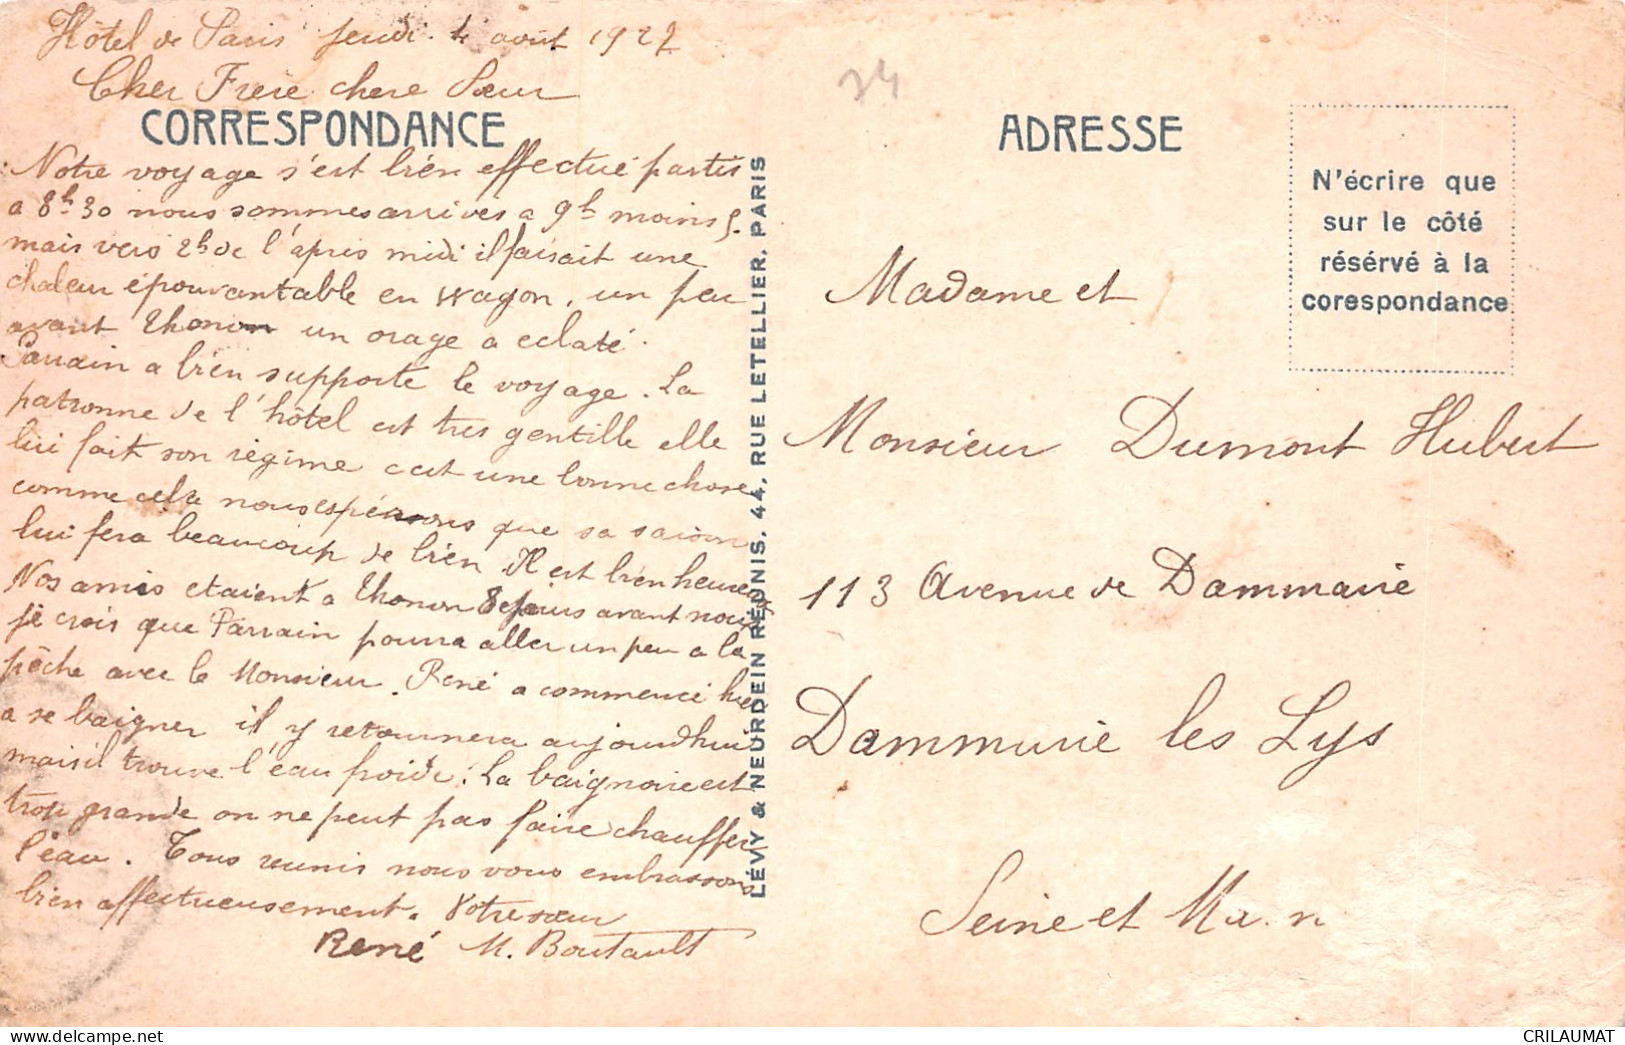 Hôtel de Paris jeudi 4 août 1927
Cher Frère chere Sœur
CORRESPONDANCE
Notre voyage s'est bien effectué partis
a 8h 30 nous sommes arrives a 9h moins 5.
mais vers 2h de l'après midi il faisait une
chaleur épouvantable en wagon, un peu
avant Thonon un orage a eclaté.
Parrain a bien supporté le voyage. La
patronne de l'hôtel est tres gentille elle
lui fait son régime c'est une bonne chose
comme cela nous espérons que sa saison
lui fera beaucoup de bien Il est bien heureux
Nos amis etaient a Thonon 8 jours avant nous
je crois que Parrain pourra aller un peu a la
pêche avec le Monsieur. René a commencé hier
a se baigner il y retournera aujourd'hui
mais il trouve l'eau froide. La baignoire est
trop grande on ne peut pas faire chauffer
l'eau. Tous reunis nous vous embrassons
bien affectueusement. Votre sœur
René M. Boutault
LÉVY & NEURDEIN RÉUNIS, 44, RUE LETELLIER, PARIS
34
ADRESSE
N'écrire que
sur le côté
résérvé à la
corespondance
Madame et
Monsieur Dumont Hubert
113 Avenue de Dammarie
Dammarie les Lys
Seine et Ma.n
CRILAUMAT